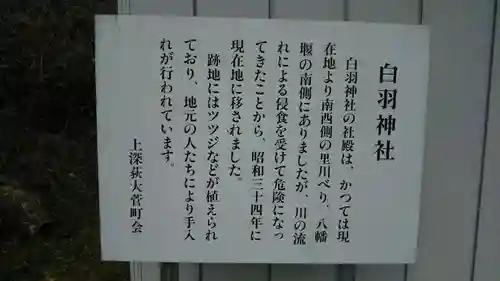 白羽神社
白羽神社の社殿は、かつては現
在地より南西側の里川べり、八幡
堰の南側にありましたが、川の流
れによる侵食を受けて危険になっ
てきたことから、昭和三十四年に
現在地に移されました。
跡地にはツツジなどが植えられ
ており、地元の人たちにより手入
れが行われています。
上深荻大菅町会